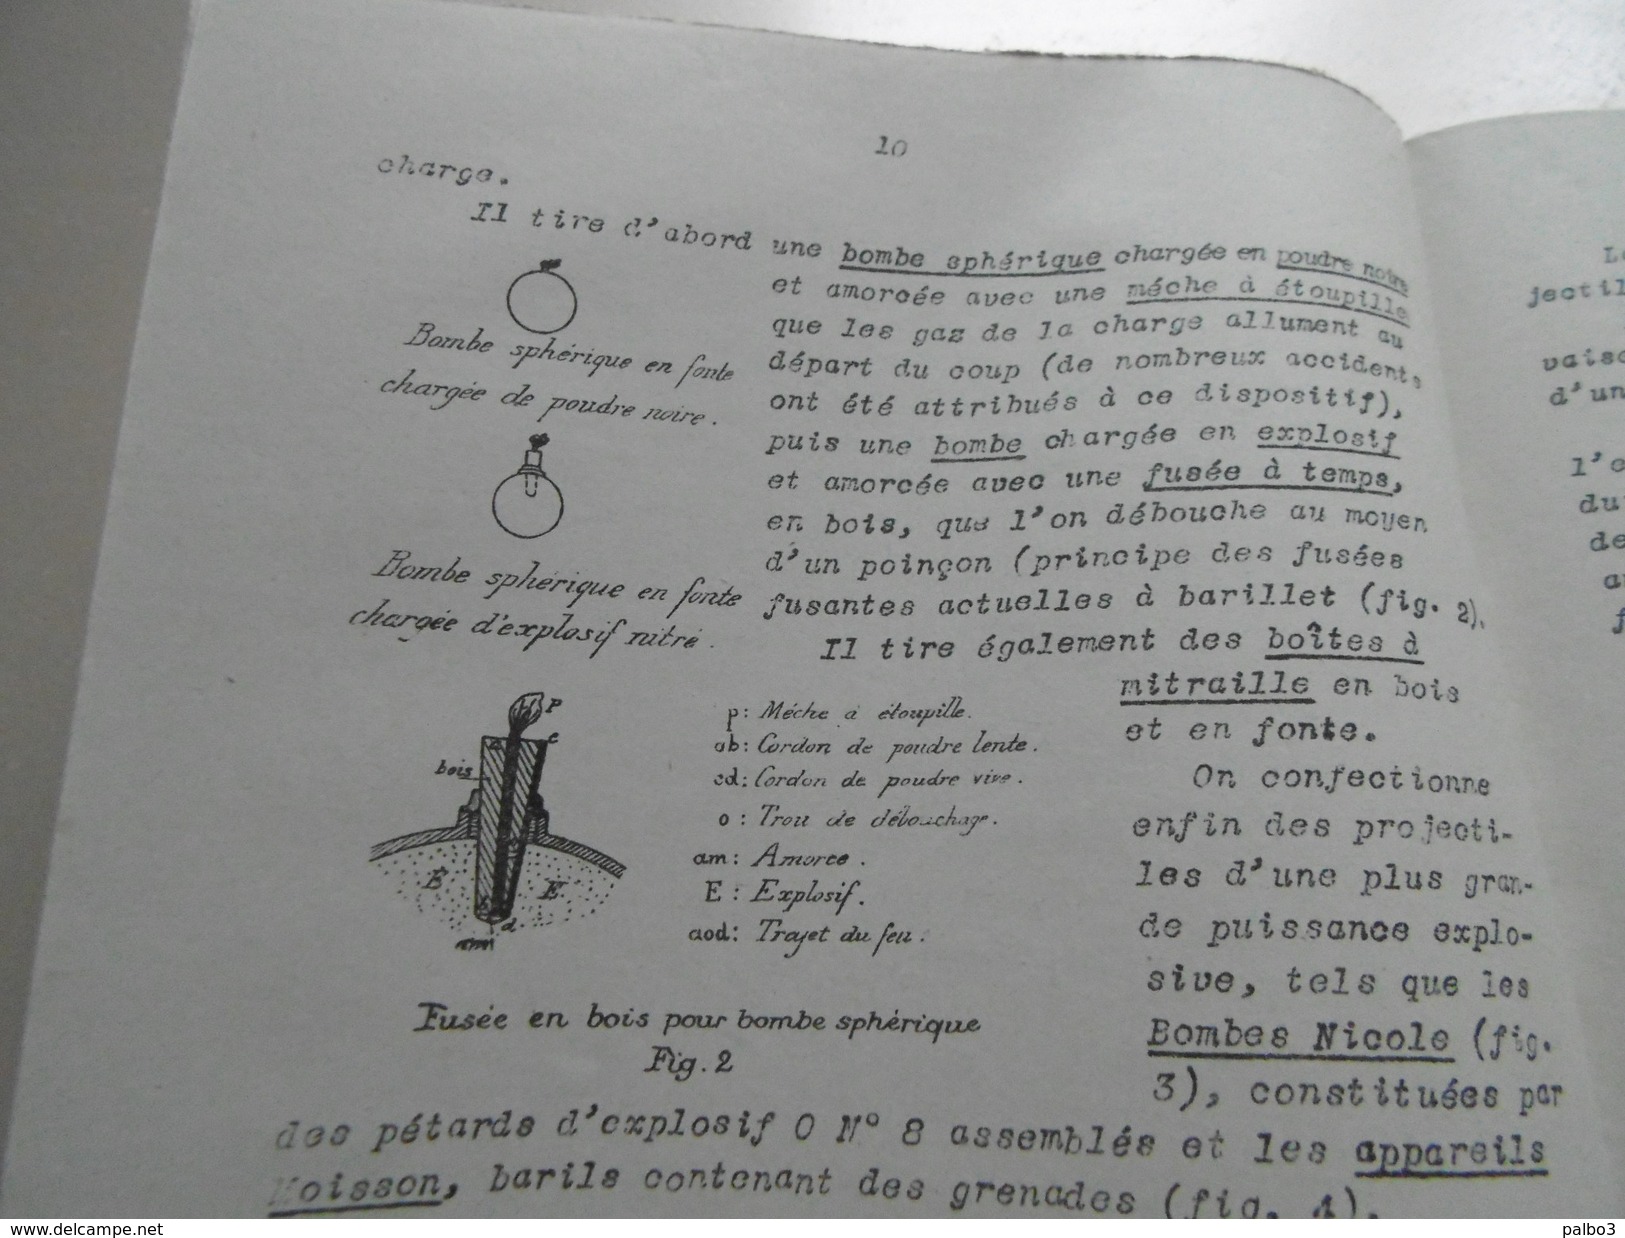 10
charge.
Il tire d'abord une bombe sphérique chargée en poudre noire
et amorcée avec une méche à étoupille
que les gaz de la charge allument au
départ du coup (de nombreux accidents
ont été attribués à ce dispositif),
puis une bombe chargée en explosif
et amorcée avec une fusée à temps,
en bois, que l'on débouche au moyen
d'un poinçon (principe des fusées
fusantes actuelles à barillet (fig. 2).
Il tire également des boîtes à
mitraille en bois
et en fonte.
On confectionne
enfin des projecti-
les d'une plus gran-
de puissance explo-
sive, tels que les
Bombes Nicole (fig.
3), constituées par
des pétards d'explosif O N° 8 assemblés et les appareils
Moisson, barils contenant des grenades (fig. 4).
Bombe sphérique en fonte
chargée de poudre noire.
Bombe sphérique en fonte
chargée d'explosif nitré.
p
c
bois
E E
d
am
p: Méche à étoupille.
ab: Cordon de poudre lente.
cd: Cordon de poudre vive.
o : Trou de débouchage.
am: Amorce.
E : Explosif.
aod: Trajet du feu.
Fusée en bois pour bombe sphérique
Fig. 2
jectil
d'un
l'
du
de
www.delcampe.net
palbo3